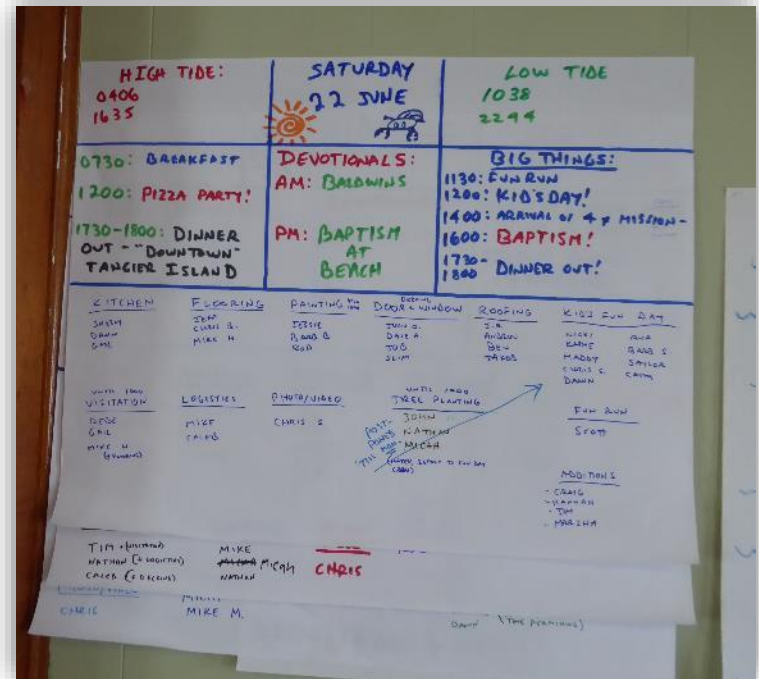 HIGH TIDE:
0406
1635
SATURDAY
22 JUNE
LOW TIDE
1038
2244
0730: BREAKFAST
1200: PIZZA PARTY!
1730-1800: DINNER
OUT - "DOWNTOWN"
TANGIER ISLAND
DEVOTIONALS:
AM: BALDWINS
PM: BAPTISM
AT
BEACH
BIG THINGS:
1130: FUN RUN
1200: KID'S DAY!
1400: ARRIVAL OF 4 MISSION-
1600: BAPTISM!
1730-
1800 DINNER OUT!
KITCHEN
DAWN
GAIL
FLOORING
JEFF
CHRIS B.
MIKE H
PAINTING
JESSIE
BARB B
ROB
DOOR & WINDOW
DAVE A.
SLIM
ROOFING
J.R.
ANDREW
BEN
JAKOB
KID'S FUN DAY
NICKI
MADDY
CHRIS S.
DAWN
BARB S
SAYLOR
UNTIL 1000
VISITATION
DEDE
GAIL
MIKE H
LOGISTICS
MIKE
CALEB
PHOTO/VIDEO
CHRIS S
UNTIL 1000
TREE PLANTING
JOHN
NATHAN
MICAH
POST-
PONED
TIL MON
FUN RUN
SCOTT
ADDITIONS
- CRAIG
- HANNAH
- TIM
- MARSHA
TIM + (VISITATION)
NATHAN (+ LOGISTICS)
CALEB
MIKE
MICAH
NATHAN
CHRIS
CHRIS
MIKE M.
DAWN